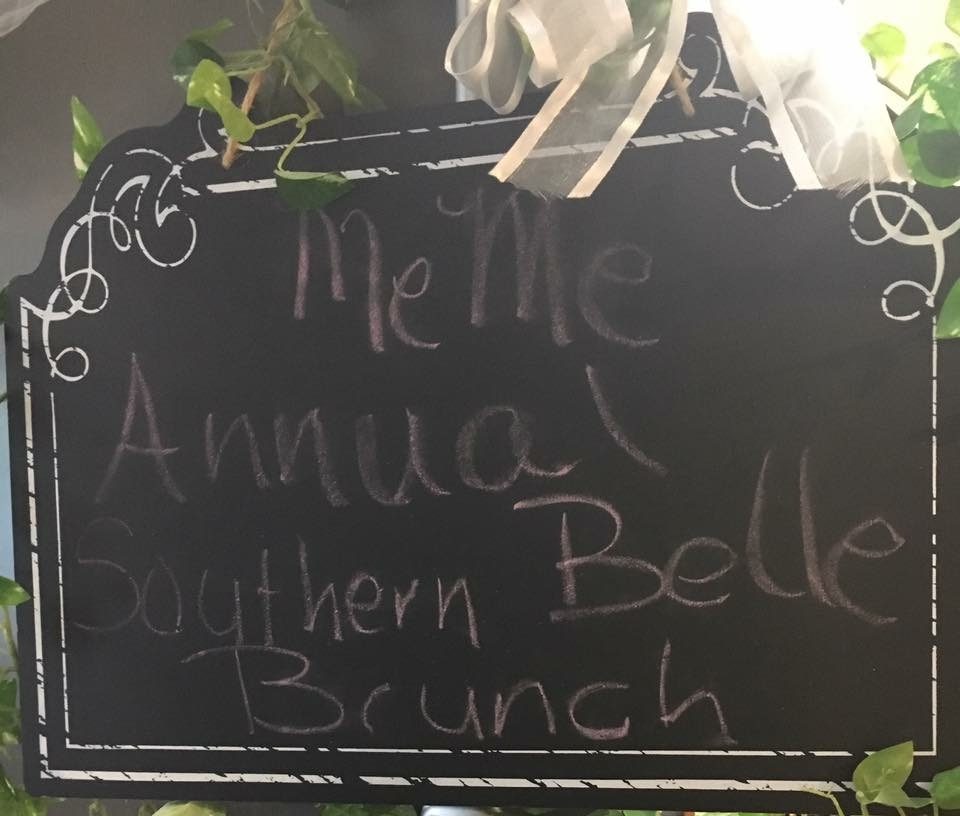 MeMe
Annual
Southern Belle
Brunch